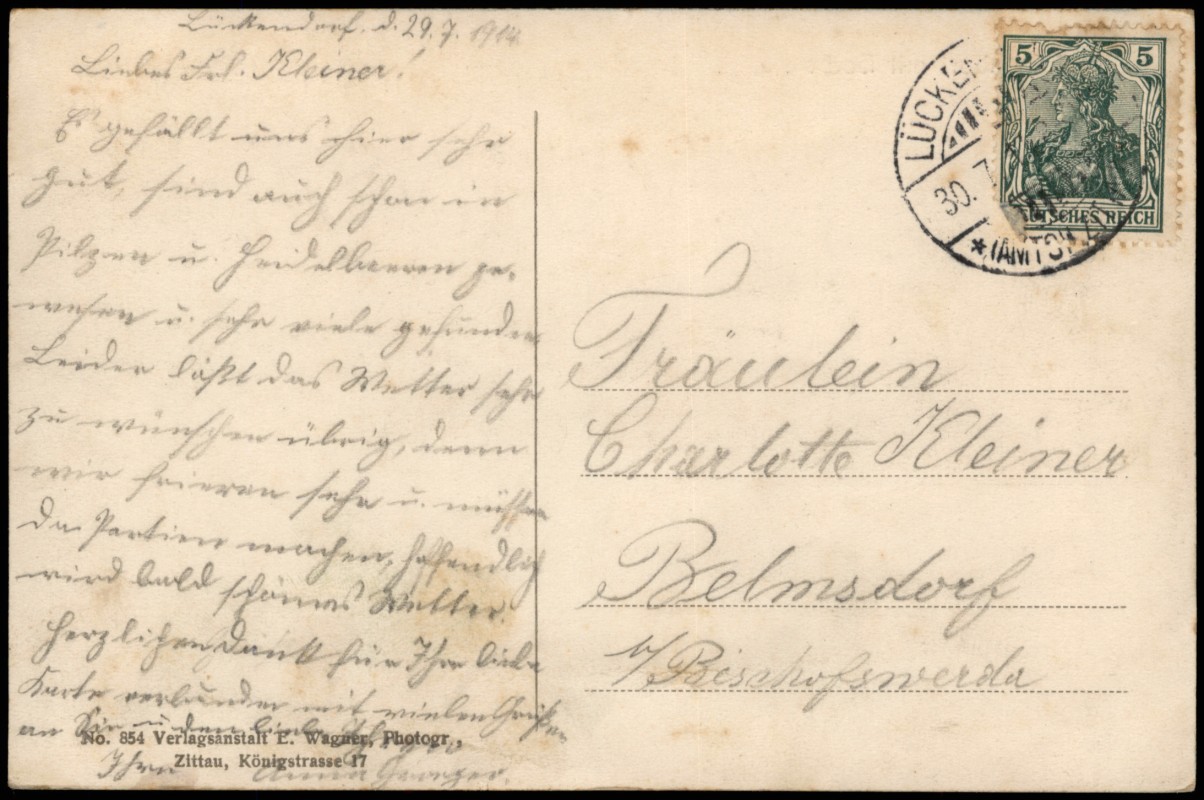 Lückendorf. d. 29.7.1914.
Liebes Frl. Kleiner!
Es gefällt uns hier sehr
gut, sind auch schon in
Pilzen u. Heidelbeeren ge-
wesen u. sehr viele gefunden
Leider läßt das Wetter sehr
zu wünschen übrig, denn
wir frieren sehr u. müssen
da Partien machen, hoffendlich
wird bald schönes Wetter.
Herzlichen Dank für Ihre liebe
Karte verbunden mit vielen Grüßen
an Sie u. den lieben
Ihre Anna
No. 854 Verlagsanstalt E. Wagner, Photogr.,
Zittau, Königstrasse 17
5 5
DEUTSCHES REICH
LÜCKEN
30. 7.
Fräulein
Charlotte Kleiner
Belmsdorf
b/Bischofswerda